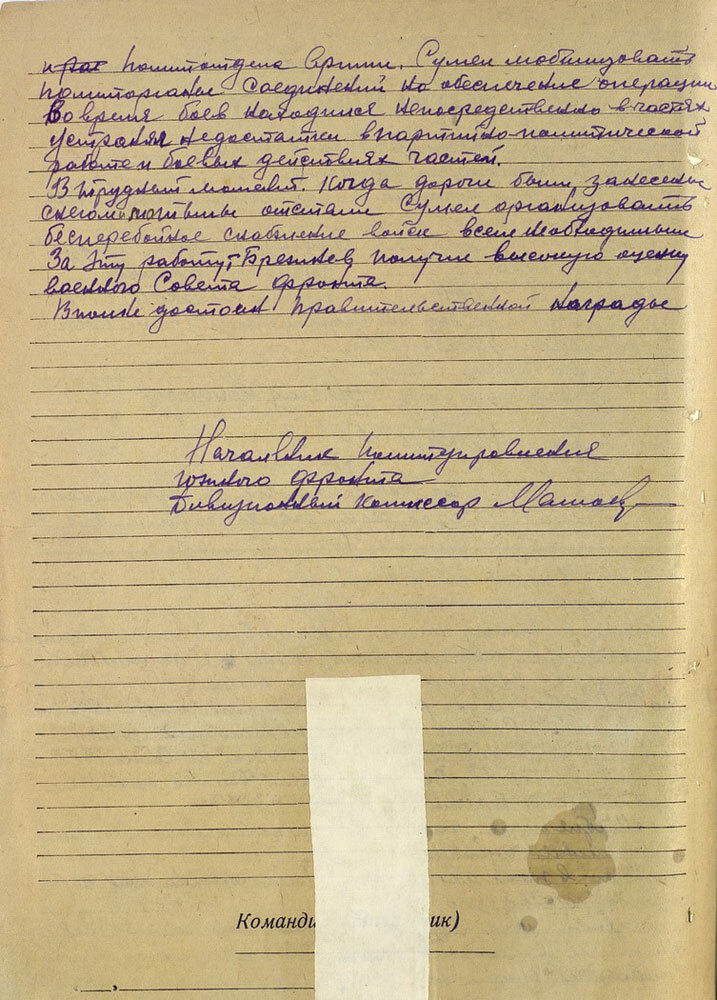 Политотдела Армии. Сумел мобилизовать
политорганы соединений на обеспечение операции
Во время боев находился непосредственно в частях
устраняя недостатки в партийно-политической
работе и боевых действиях частей.
В трудный момент. Когда дороги были занесены
снегом и машины отстали сумел организовать
бесперебойное снабжение войск всем необходимым
За эту работу т Брежнев получил высокую оценку
военного Совета фронта.
Вполне достоин правительственной награды
Начальник политуправления
южного фронта
Дивизионный комиссар
Команди ик)